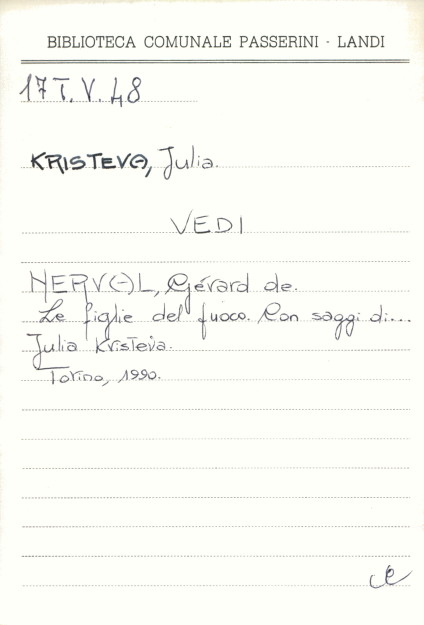 BIBLIOTECA COMUNALE PASSERINI - LANDI
17 T. V. 48
KRISTEVA, Julia.
VEDI
NERVAL, Gérard de.
Le figlie del fuoco. Con saggi di...
Julia Kristeva.
Torino, 1990.